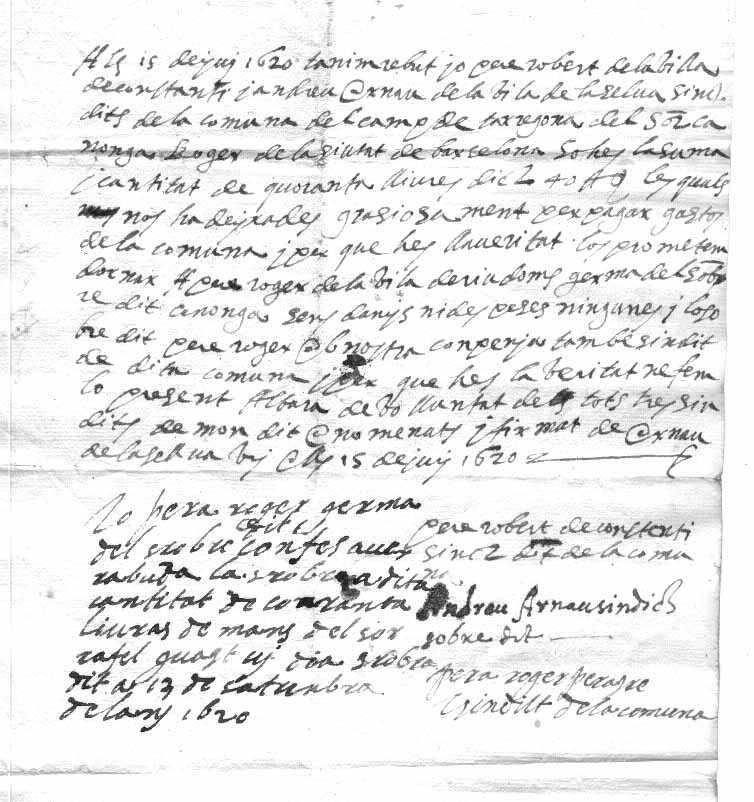 Als 15 dejuj 1620 tanim rebut jo pere robert de la billa
de constanti j andreu Arnau de la bila de la selua sindi
dits de la comuna del camp de tarragona del Sor ca
nonga Roger de la siutat de barselona So hes la suma
j cantitat de quoranta lliures dic L 40 # les quals
nos ha deixades grasiosa ment per pagar gastos
de la comuna j per que hes llaueritat los prometem
dornar A pere roger de la bila de riudoms germa del Sob
re dit canonga sens danys nides peses ningunes j loso
bre dit pere roger Ab nostra conpenja tambe sindit
de dita comuna j per que hes la beritat ne fem
lo present Albara de bo lluntat de tots tres sin
dits de mon dit Anomenats j firmat de Arnau
de la sellua buj Als 15 dejuj 1620
Jo pera roger germa
dit
del srobre confes auer
rabuda la srobra dita
cantitat de coranta
liuras de mans del sor
rafel guast uj dia srobra
dit a 13 de satembra
de lanj 1620
pere robert de constenti
sindit de la comu
na
Andreu Arnau sindich
sobre dit
pera roger
sindit de la comuna